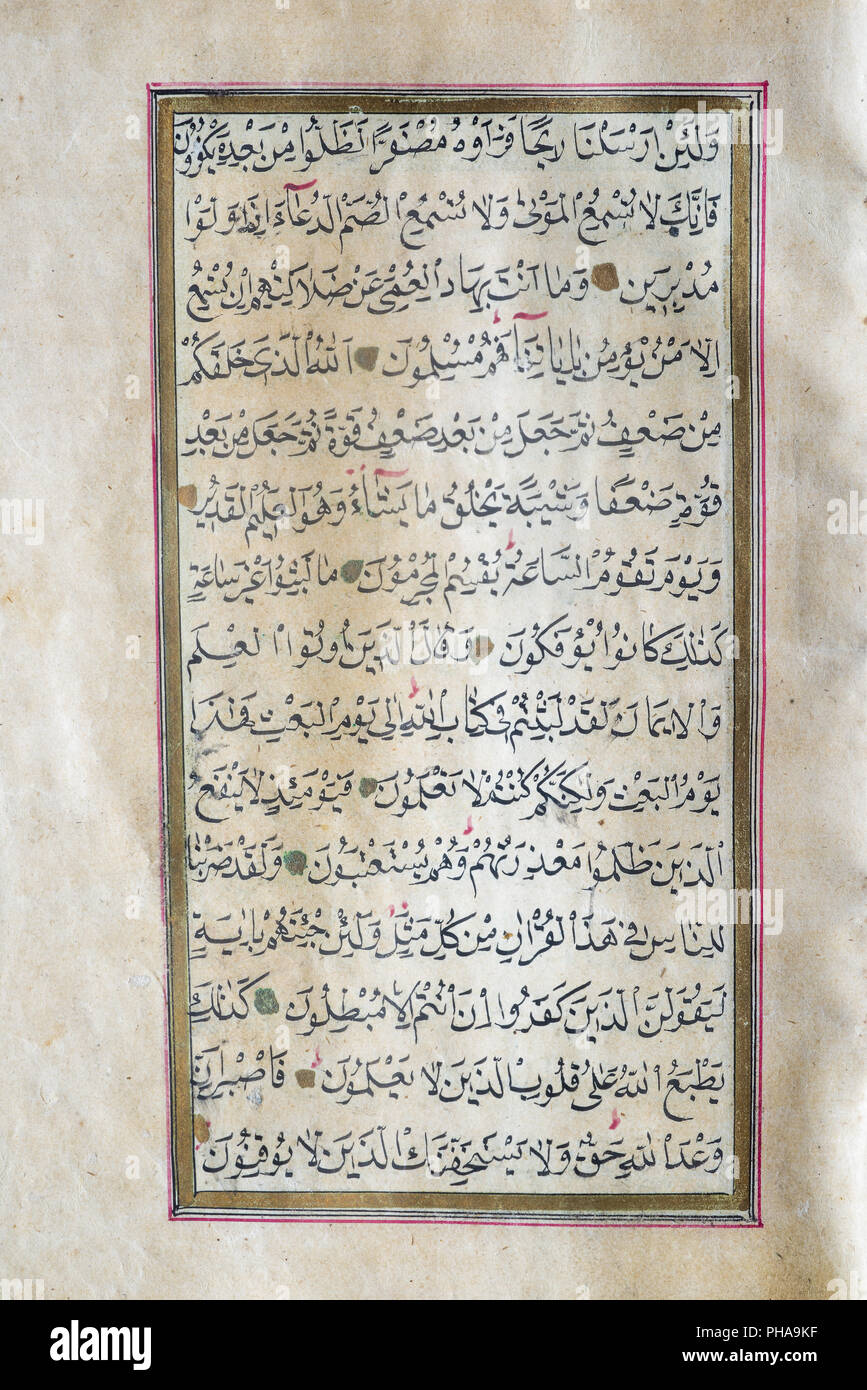 وَلَئِنْ اَرْسَلْنَا رِيحًا فَرَاَوْهُ مُصْفَرًّا لَظَلُّوا مِنْ بَعْدِهِ يَكْفُرُونَ
فَاِنَّكَ لَا تُسْمِعُ الْمَوْتٰى وَلَا تُسْمِعُ الصُّمَّ الدُّعَآءَ اِذَا وَلَّوْا
مُدْبِرِينَ وَمَا اَنْتَ بِهَادِ الْعُمْىِ عَنْ ضَلَالَتِهِمْ اِنْ تُسْمِعُ
اِلَّا مَنْ يُؤْمِنُ بِاٰيَاتِنَا فَهُمْ مُسْلِمُونَ اَللّٰهُ الَّذِى خَلَقَكُمْ
مِنْ ضَعْفٍ ثُمَّ جَعَلَ مِنْ بَعْدِ ضَعْفٍ قُوَّةً ثُمَّ جَعَلَ مِنْ بَعْدِ
قُوَّةٍ ضَعْفًا وَشَيْبَةً يَخْلُقُ مَا يَشَآءُ وَهُوَ الْعَلِيمُ الْقَدِيرُ
وَيَوْمَ تَقُومُ السَّاعَةُ يُقْسِمُ الْمُجْرِمُونَ مَا لَبِثُوا غَيْرَ سَاعَةٍ
كَذٰلِكَ كَانُوا يُؤْفَكُونَ وَقَالَ الَّذِينَ اُوتُوا الْعِلْمَ
وَالْاِيمَانَ لَقَدْ لَبِثْتُمْ فِى كِتَابِ اللّٰهِ اِلٰى يَوْمِ الْبَعْثِ فَهٰذَا
يَوْمُ الْبَعْثِ وَلٰكِنَّكُمْ كُنْتُمْ لَا تَعْلَمُونَ فَيَوْمَئِذٍ لَا يَنْفَعُ
الَّذِينَ ظَلَمُوا مَعْذِرَتُهُمْ وَلَا هُمْ يُسْتَعْتَبُونَ وَلَقَدْ ضَرَبْنَا
لِلنَّاسِ فِى هٰذَا الْقُرْاٰنِ مِنْ كُلِّ مَثَلٍ وَلَئِنْ جِئْتَهُمْ بِاٰيَةٍ
لَيَقُولَنَّ الَّذِينَ كَفَرُوا اِنْ اَنْتُمْ اِلَّا مُبْطِلُونَ كَذٰلِكَ
يَطْبَعُ اللّٰهُ عَلٰى قُلُوبِ الَّذِينَ لَا يَعْلَمُونَ فَاصْبِرْ اِنَّ
وَعْدَ اللّٰهِ حَقٌّ وَلَا يَسْتَخِفَّنَّكَ الَّذِينَ لَا يُوقِنُونَ
alamy
Image ID: PHA9KF
www.alamy.com